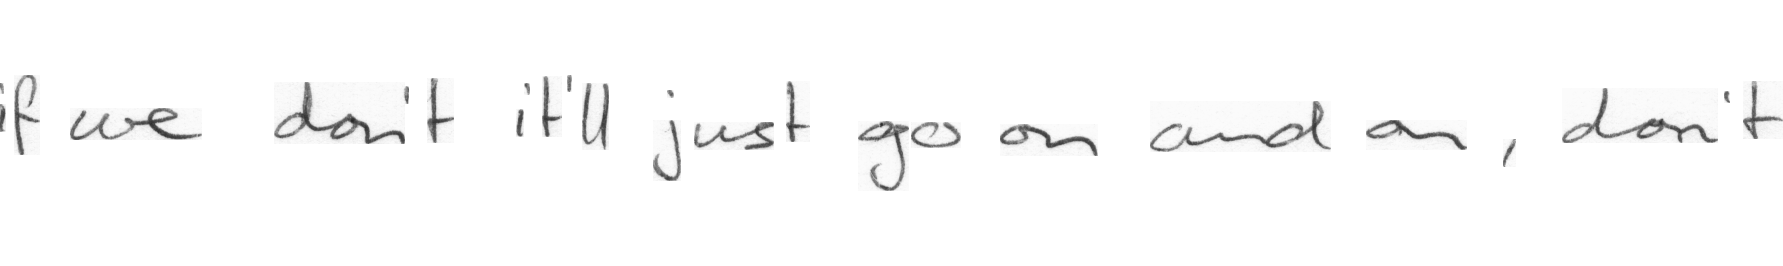 if we don't it'll just go on and on, don't